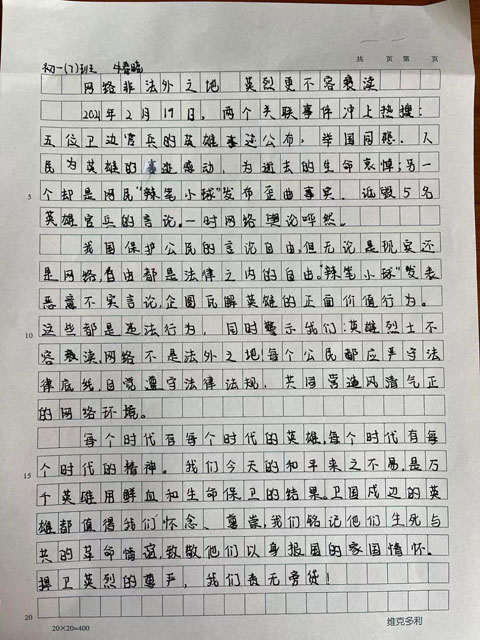 共 页 第 页
初一(7)班
网络非法外之地 英烈更不容亵渎
2021年2月19日，两个关联事件冲上热搜：
五位卫边官兵的英雄事迹公布，举国同悲。人
民为英雄的事迹感动，为逝去的生命哀悼；另一
个却是网民"辣笔小球"发布歪曲事实、诋毁5名
5
英雄官兵的言论。一时网络舆论哗然。
我国保护公民的言论自由，但无论是现实还
是网络，自由都是法律之内的自由。"辣笔小球"发表
恶意不实言论，企图瓦解英雄的正面价值行为。
这些都是违法行为，同时警示我们：英雄烈士不
10
容亵渎，网络不是法外之地，每个公民都应严守法
律底线，自觉遵守法律法规，共同营造风清气正
的网络环境。
每个时代有每个时代的英雄，每个时代有每
个时代的精神。我们今天的和平来之不易，是万
15
千英雄用鲜血和生命保卫的结果。卫国戍边的英
雄都值得我们怀念、尊崇，我们铭记他们生死与
共的革命情谊，致敬他们以身报国的家国情怀。
捍卫英烈的尊严，我们责无旁贷！
20
20×20=400 维克多利